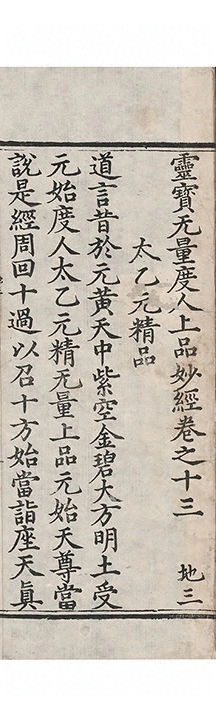 靈寶无量度人上品妙經卷之十三 地三
太乙元精品
道言昔於元黃天中紫空金碧大方明土受
元始度人太乙元精无量上品元始天尊當
說是經周回十過以召十方始當詣座天眞